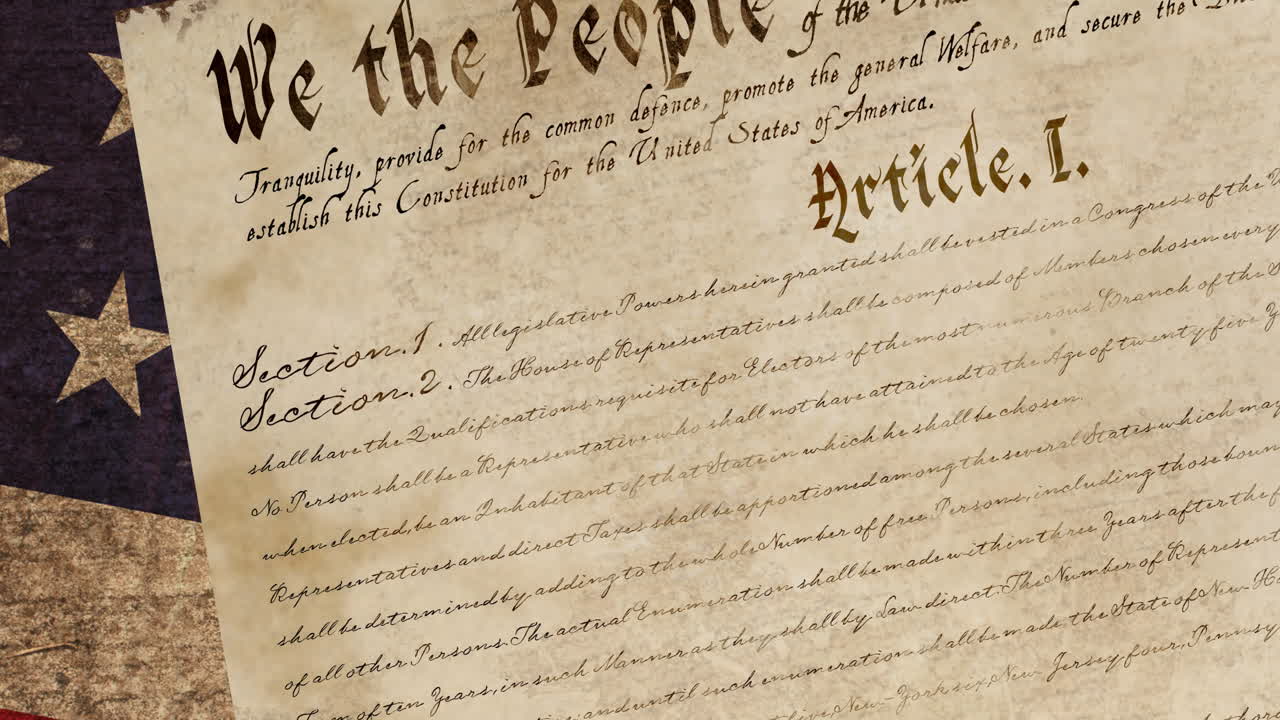 We the People of the
Tranquility, provide for the common defence, promote the general Welfare, and secure the
establish this Constitution for the United States of America.
Article. I.
Section. 1. All legislative Powers herein granted shall be vested in a Congress of the
Section. 2. The House of Representatives shall be composed of Members chosen every
shall have the Qualifications requisite for Electors of the most numerous Branch of the
No Person shall be a Representative who shall not have attained to the Age of twenty five
when elected, be an Inhabitant of that State in which he shall be chosen.
Representatives and direct Taxes shall be apportioned among the several States which may
shall be determined by adding to the whole Number of free Persons, including those boun
of all other Persons. The actual Enumeration shall be made within three Years after the
of ten Years, in such Manner as they shall by Law direct. The Number of Represent
and until such enumeration shall be made, the State of New
New-York six, New-Jersey four, Pennsy